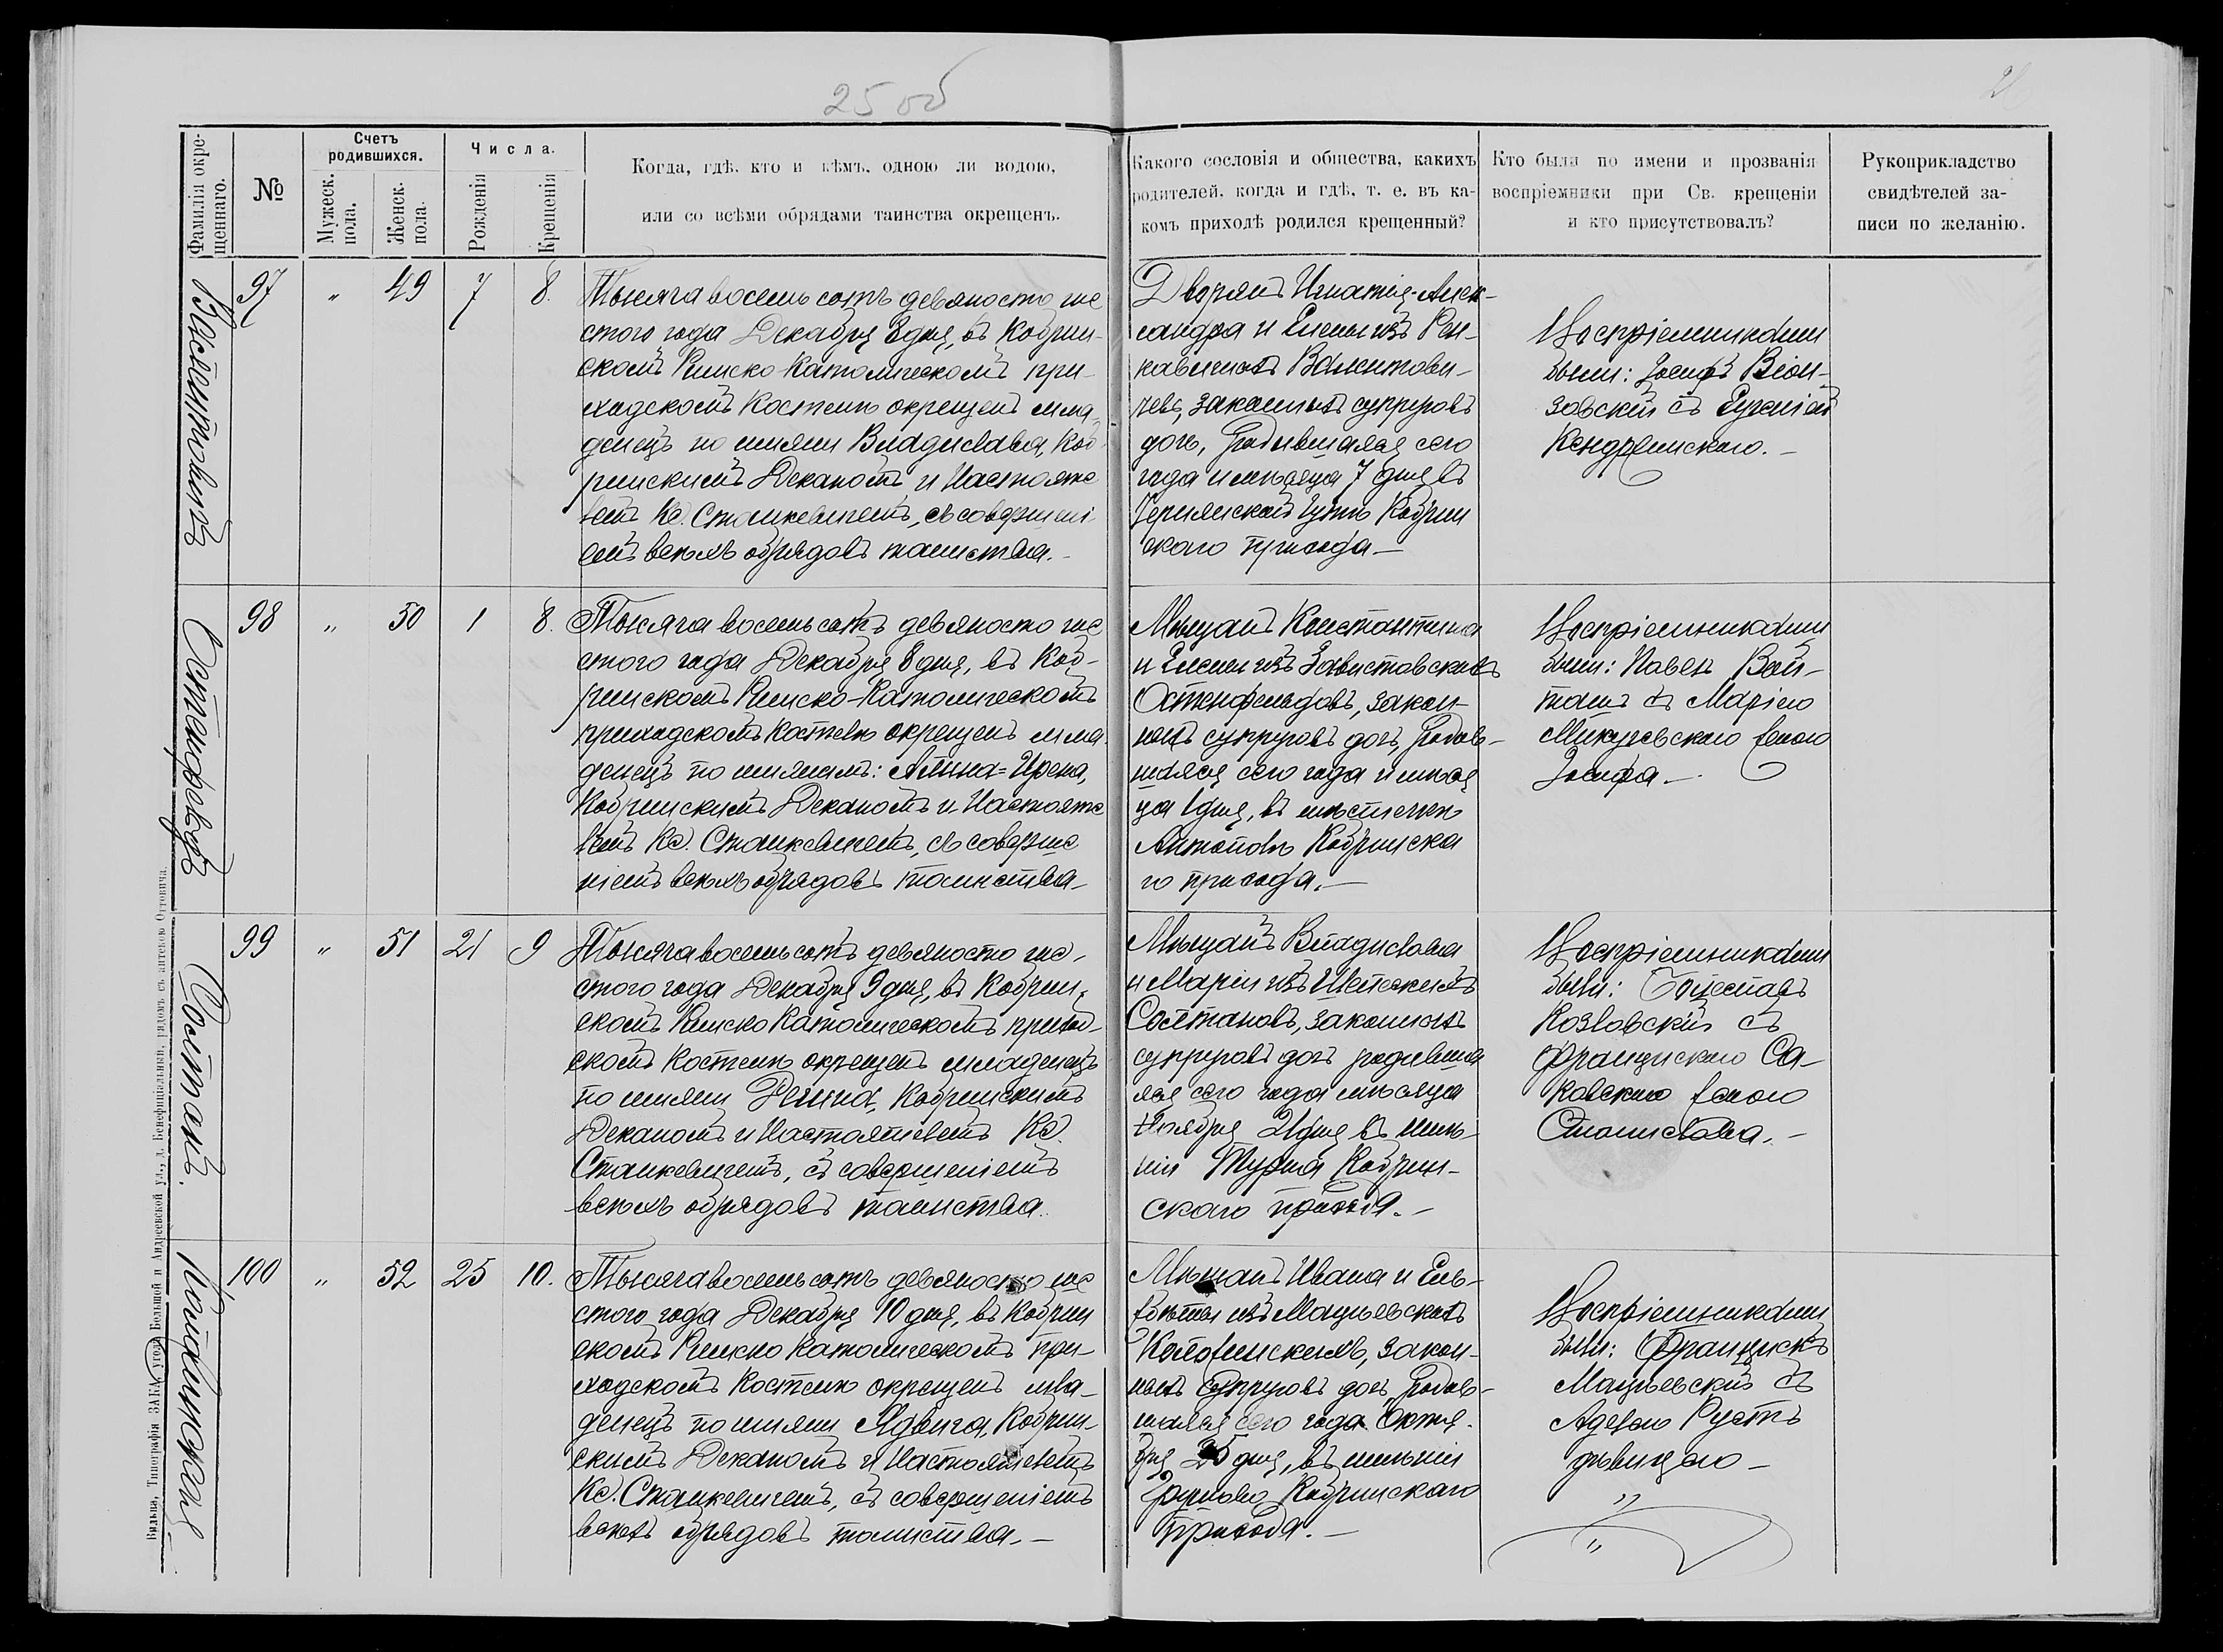 25 об
2
Фамилія окре-
щеннаго.
№
Счетъ
родившихся.
Мужеск.
пола.
Женск.
пола.
Числа.
Рожденія
Крещенія
Когда, гдѣ, кто и кѣмъ, одною ли водою,
или со всѣми обрядами таинства окрещенъ.
Какого сословія и общества, какихъ
родителей, когда и гдѣ, т. е. въ ка-
комъ приходѣ родился крещенный?
Кто были по имени и прозванія
воспріемники при Св. крещеніи
и кто присутствовалъ?
Рукоприкладство
свидѣтелей за-
писи по желанію.
Валентиновичъ
97
"
49
7
8.
Тысяча восемь сотъ девяносто ше
стого года Декабря 8 дня, въ Кобрин-
скомъ Римско-Католическомъ при-
ходскомъ Костелѣ окрещенъ мла-
денецъ по имяни Владислава, Коб-
ринскимъ Деканомъ и Настояте
лемъ Кс. Станкевичемъ, съ совершені
емъ всѣхъ обрядовъ таинства.-
Дворянъ Игнатія-Алек-
сандра и Елены изъ
Валентинови-
чевъ, законныхъ супруговъ
дочь, родившаяся сего
года и мѣсяца 7 дня въ
Кобрин
скаго прихода-
Воспріемниками
были: Іосифъ
съ Евгеніей
98
"
50
1
8.
Тысяча восемь сотъ девяносто ше
стого года Декабря 8 дня, въ Коб-
ринскомъ Римско-Католическомъ
приходскомъ Костелѣ окрещенъ мла-
денецъ по имянамъ: Алина=Ирена,
Кобринскимъ Деканомъ и Настояте
лемъ Кс. Станкевичемъ, съ соверше
ніемъ всѣхъ обрядовъ таинства-
Мѣщанъ Константина
и Елены изъ Завистовскихъ
Остенфельдовъ, закон-
ныхъ супруговъ дочь, родив-
шаяся сего года и мѣся
ца 1 дня, въ мѣстечкѣ
Антополь Кобринска
го прихода.-
Воспріемниками
были: Павелъ Вой-
съ Маріею
женою
Іосифа.-
Остенфельдъ
99
"
51
21
9
Тысяча восемь сотъ девяносто ше-
стого года Декабря 9 дня, въ Кобрин-
скомъ Римско Католическомъ приход-
скомъ Костелѣ окрещенъ младенецъ
по имяни Янина, Кобринскимъ
Деканомъ и Настоятелемъ Кс.
Станкевичемъ, съ совершеніемъ
всѣхъ обрядовъ таинства.
Мѣщанъ Владислава
и Маріи изъ
Солтановъ, законныхъ
супруговъ дочь родивша
яся сего года мѣсяца
Ноября 21 дня въ имѣ-
ніи Турна Кобрин-
скаго прихода.-
Воспріемниками
были: Болеславъ
Козловскій съ
Францискою Са-
ковскою женою
Станислава.-
Солтанъ.
100
"
52
25
10.
Тысяча восемь сотъ девяносто ше
стого года Декабря 10 дня, въ Кобрин
скомъ Римско Католическомъ при-
ходскомъ Костелѣ окрещенъ мла-
денецъ по имяни Ядвига, Кобрин-
скимъ Деканомъ и Настоятелемъ
Кс. Станкевичемъ, съ совершеніемъ
всѣхъ обрядовъ таинства.-
Мѣщанъ Ивана и Ели-
заветы изъ Мацѣевскихъ
закон-
ныхъ супруговъ дочь, родив-
шаяся сего года Октя-
бря 25 дня, въ имѣніи
Грушево Кобринскаго
прихода.-
Воспріемниками
были: Францискъ
Мацѣевскій съ
Аделею Рустъ
дѣвицею-
"
"
Вильна, Типографія ЗАКА, уголъ Большой и Андреевской ул., д. Бенефиціальный, рядомъ съ аптекою Оттовича.